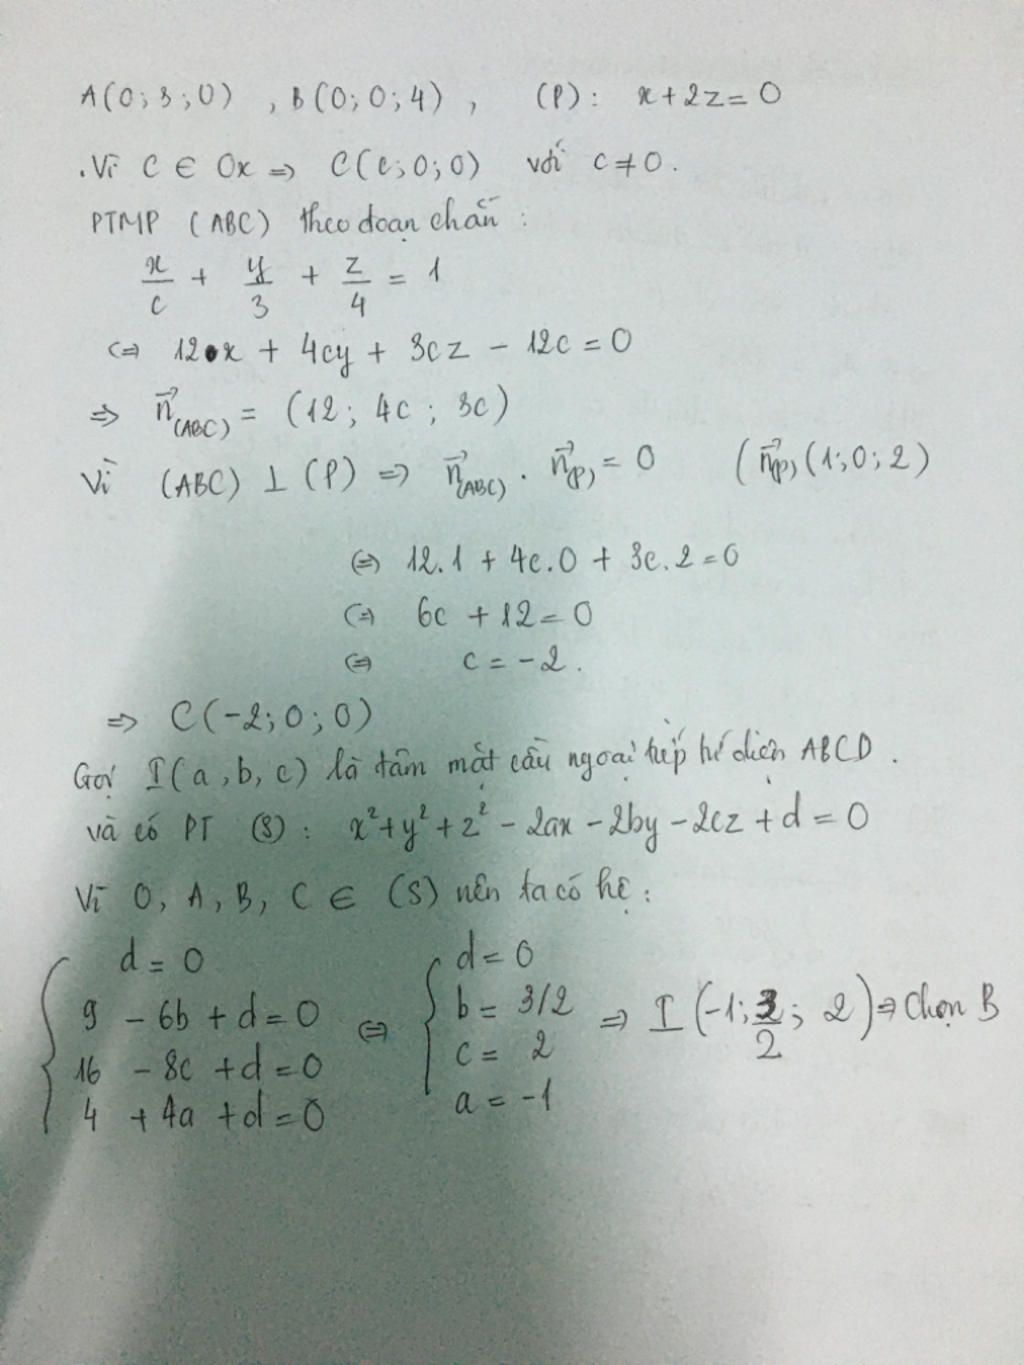 A(0;3;0) , B(0;0;4) , (P): x+2z=0
.Vì C ∈ Ox => C(c;0;0) với c≠0.
PTMP (ABC) theo đoạn chắn :
x/c + y/3 + z/4 = 1
<=> 12x + 4cy + 3cz - 12c = 0
=> n⃗(ABC) = (12; 4c; 3c)
Vì (ABC) ⊥ (P) => n⃗(ABC) . n⃗(P) = 0 (n⃗(P) (1;0;2)
<=> 12.1 + 4c.0 + 3c.2 = 0
<=> 6c + 12 = 0
<=> c = -2.
=> C(-2;0;0)
Gọi I(a,b,c) là tâm mặt cầu ngoại tiếp tứ diện ABCD .
và có PT (S): x²+y²+z² - 2ax - 2by - 2cz + d = 0
Vì O, A, B, C ∈ (S) nên ta có hệ :
{ d = 0 <=> { d = 0
9 - 6b + d = 0 b = 3/2 => I(-1; 3/2; 2) => Chọn B
16 - 8c + d = 0 c = 2
4 + 4a + d = 0 a = -1